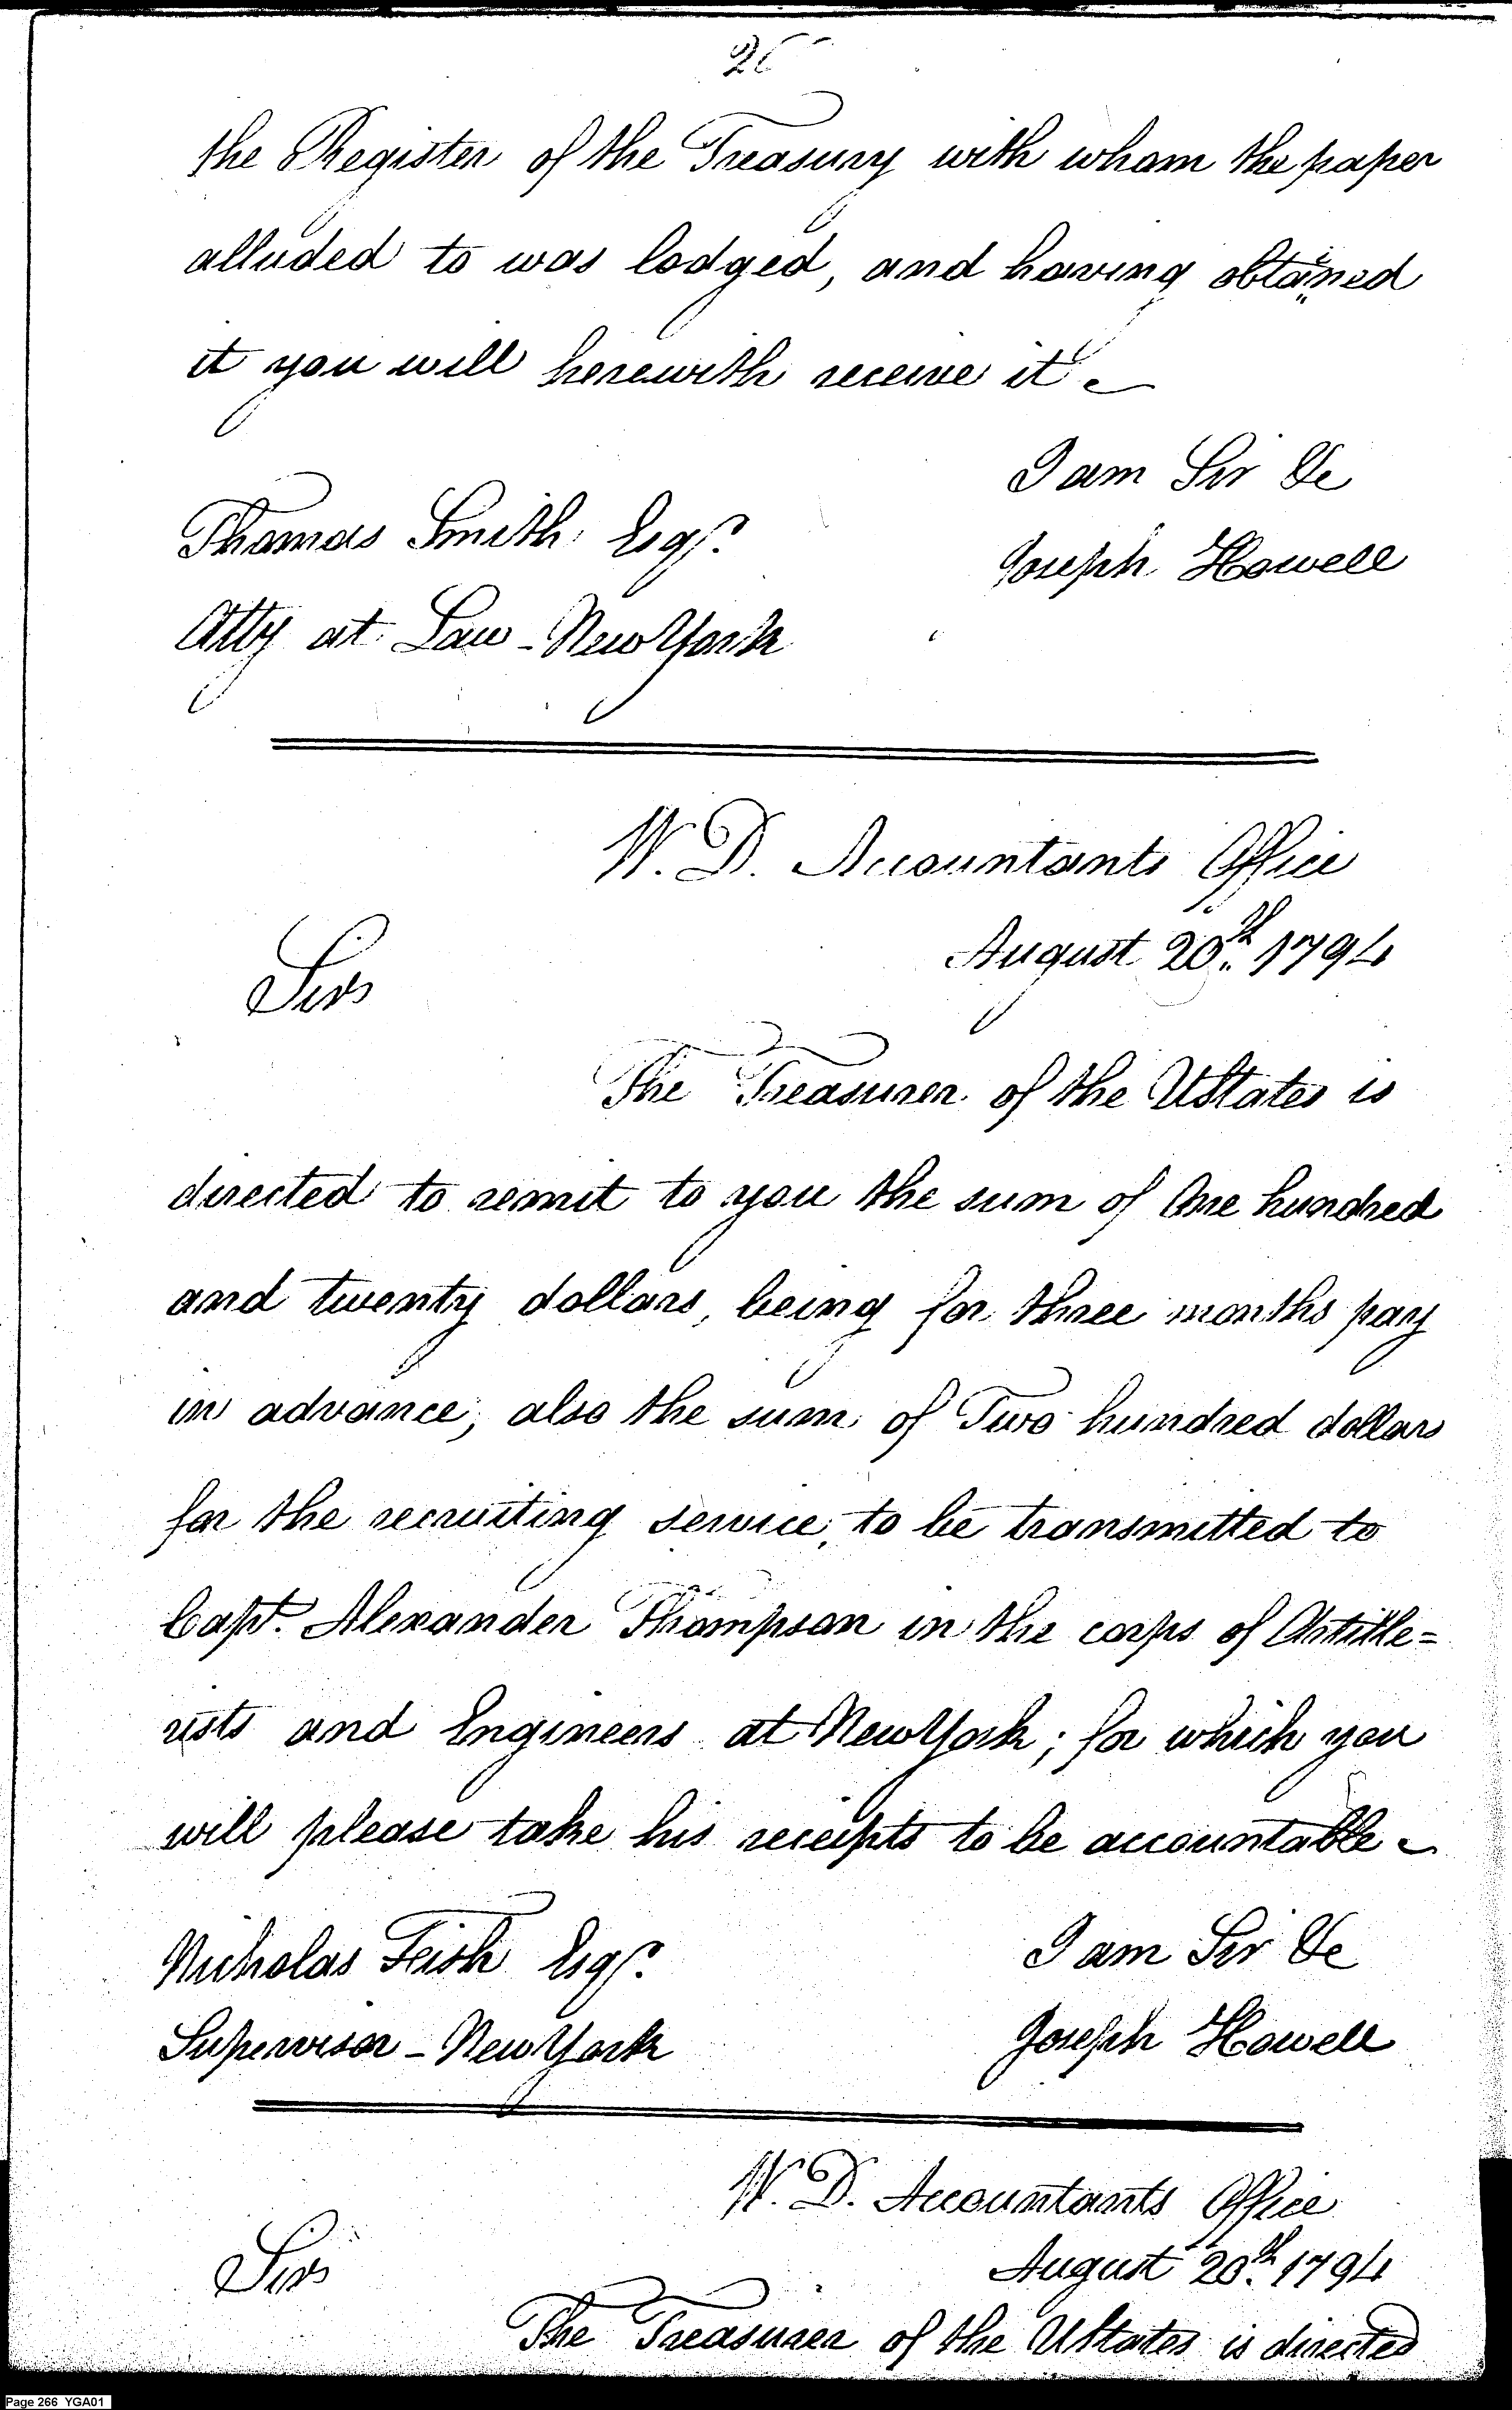 26
the Register of the Treasury with whom the paper
alluded to was lodged, and having obtained
it you will herewith receive it
I am Sir &c
Thomas Smith Esqr.
Joseph Howell
Atty at Law - New York
W. D. Accountants Office
August 20th 1794
Sir
The Treasurer of the UStates is
directed to remit to you the sum of One hundred
and twenty dollars, being for three months pay
in advance, also the sum of Two hundred dollars
for the recruiting service, to be transmitted to
Capt. Alexander Thompson in the corps of Artille=
rists and Engineers at New York; for which you
will please take his receipts to be accountable
I am Sir &c
Nicholas Fish Esqr.
Joseph Howell
Supervisor - New York
W. D. Accountants Office
August 20th 1794
Sir
The Treasurer of the UStates is directed
Page 266 YGA01